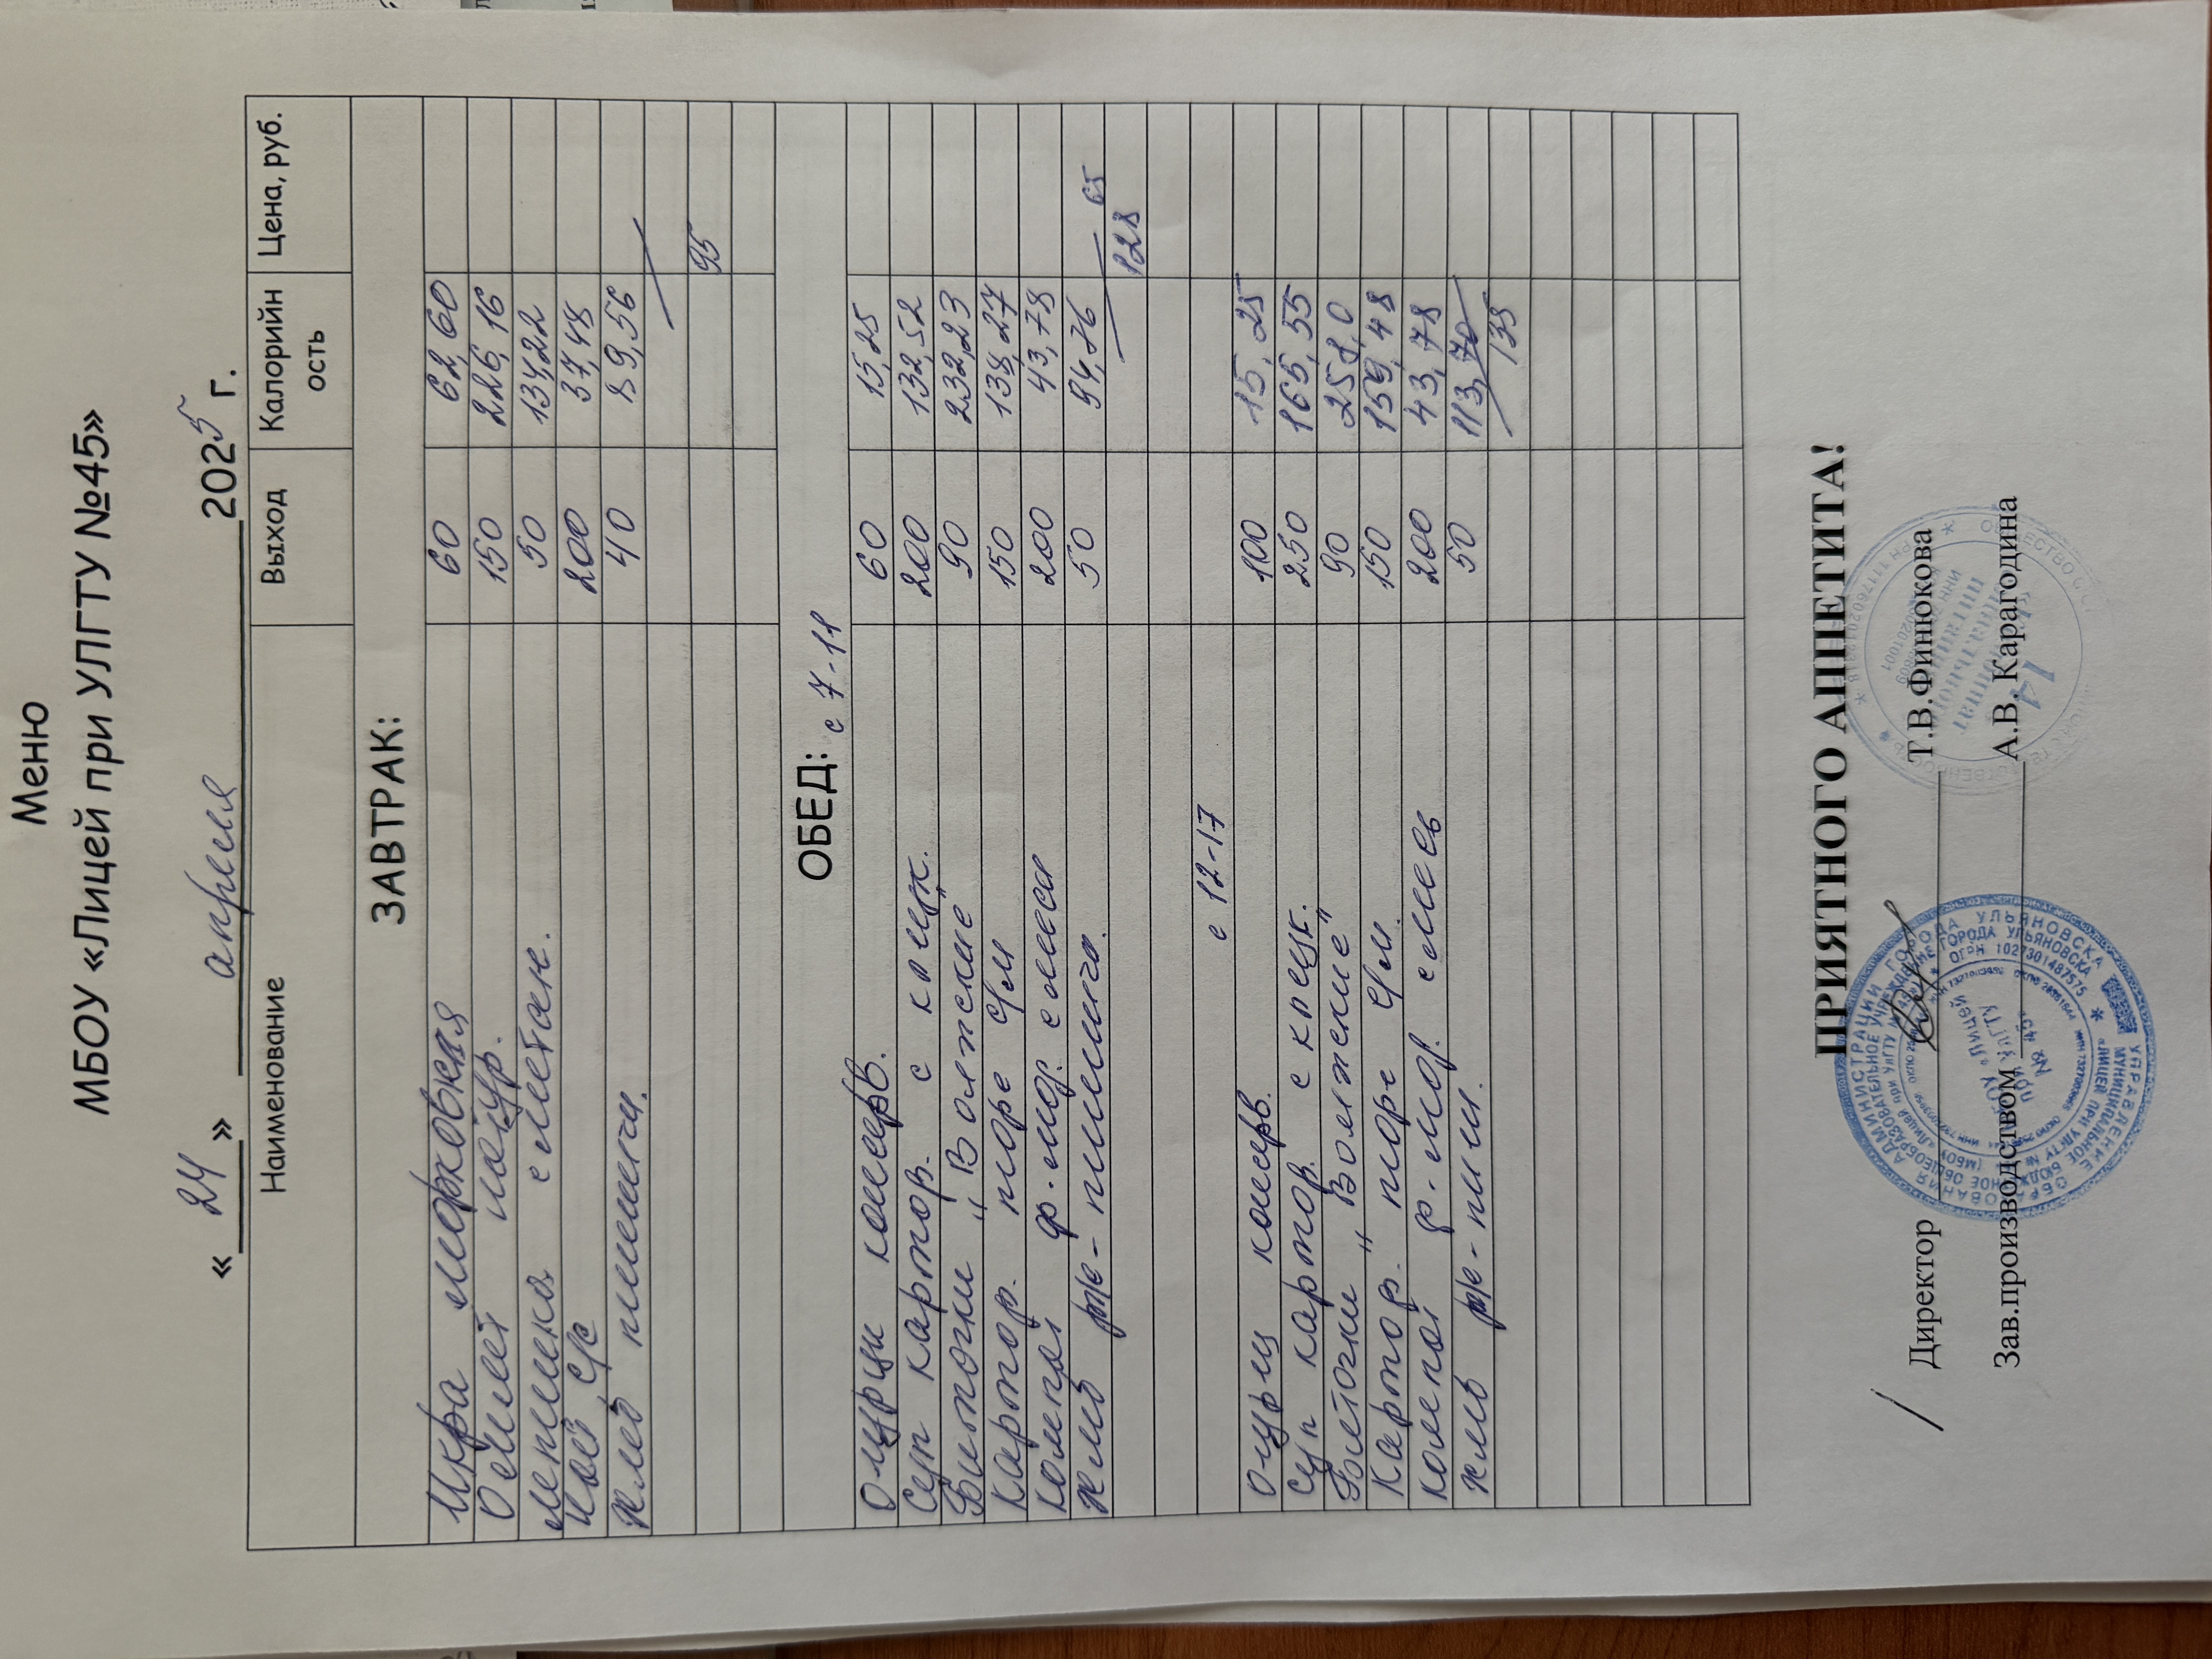 Меню
МБОУ «Лицей при УЛГТУ №45»
« 24 » апреля 2025 г.
Наименование Выход Калорийность Цена, руб.
ЗАВТРАК:
Икра морковная 60 62,60
Омлет натур. 150 226,16
Лепешка сметан. 50 134,22
Чай с/с 200 37,48
Хлеб пшенич. 40 89,56
95
ОБЕД: с 7-11
Огурцы консерв. 60 15,25
Суп картоф. с клецк. 200 132,52
Биточки "Волжские" 90 232,23
Картоф. пюре с/м 150 138,27
Компот ф-яг. смеси 200 43,78
Хлеб рж-пшенич. 50 94,76
128 65
с 12-17
Огурц консерв. 100 15,25
Суп картоф. с клецк. 250 165,55
Биточки "Волжские" 90 258,0
Картоф. пюре с/м. 150 159,48
Компот ф-яг. смесь 200 43,78
Хлеб рж-пш. 50 113,70
135
ПРИЯТНОГО АППЕТИТА!
/ Директор Т.В.Финюкова
Зав.производством А.В. Карагодина